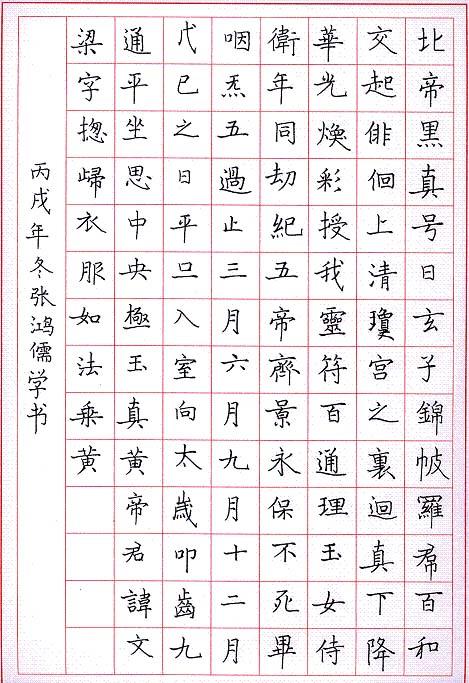 北帝黑真号曰玄子錦帔羅帬百和
交起俳佪上清瓊宮之裏迴真下降
華光煥彩授我靈符百通理玉女侍
衛年同劫紀五帝齊景永保不死畢
咽炁五過止三月六月九月十二月
戊巳之日平旦入室向太歲叩齒九
通平坐思中央極玉真黃帝君諱文
梁字揔歸衣服如法乘黃
丙戌年冬张鸿儒学书